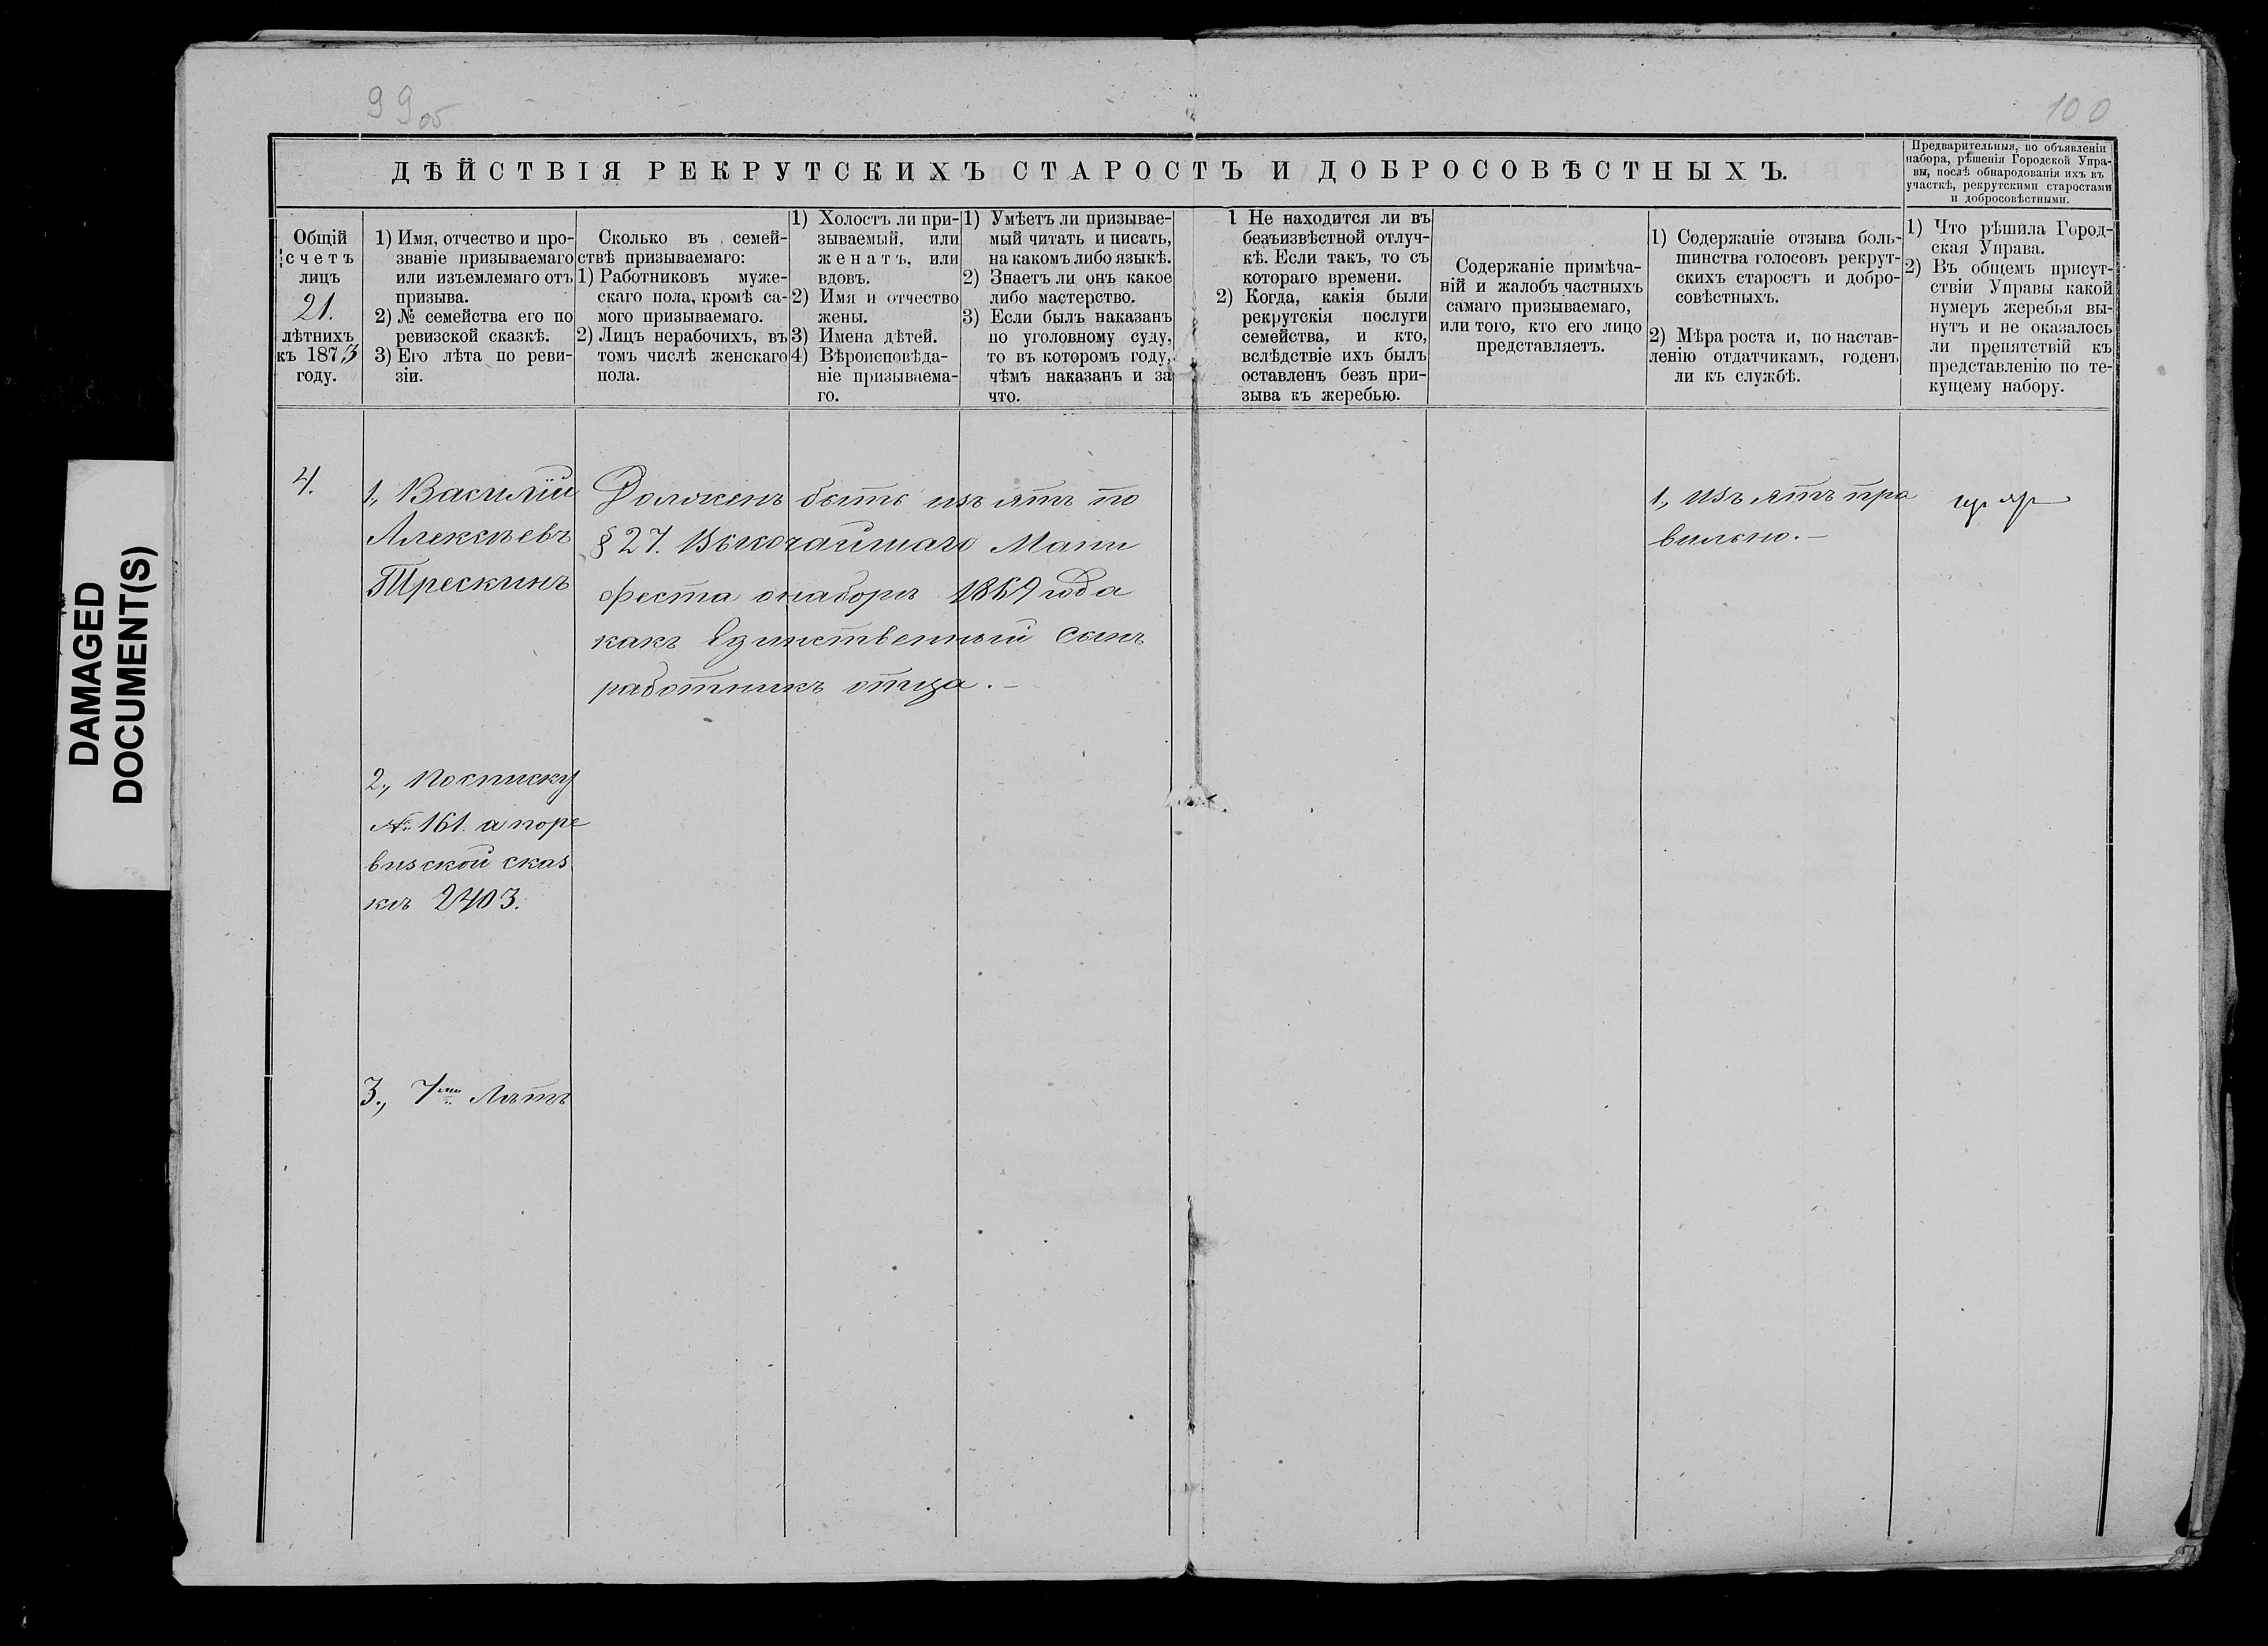 99об
100
ДѢЙСТВІЯ РЕКРУТСКИХЪ СТАРОСТЪ И ДОБРОСОВѢСТНЫХЪ.
Предварительныя, по объявленіи
набора, рѣшенія Городской Упра-
вы, послѣ обнародованія ихъ въ
участкѣ, рекрутскими старостами
и добросовѣстными.
Общій
счетъ
лицъ
21.
лѣтнихъ
къ 1873
году.
1) Имя, отчество и про-
званіе призываемаго
или изъемлемаго отъ
призыва.
2) № семейства его по
ревизской сказкѣ.
3) Его лѣта по реви-
зіи.
Сколько въ семей-
ствѣ призываемаго:
1) Работниковъ муже-
скаго пола, кромѣ са-
мого призываемаго.
2) Лицъ нерабочихъ, въ
томъ числѣ женскаго
пола.
1) Холостъ ли при-
зываемый, или
женатъ, или
вдовъ.
2) Имя и отчество
жены.
3) Имена дѣтей.
4) Вѣроисповѣда-
ніе призываема-
го.
1) Умѣетъ ли призывае-
мый читать и писать,
на какомъ либо языкѣ.
2) Знаетъ ли онъ какое
либо мастерство.
3) Если былъ наказанъ
по уголовному суду,
то въ которомъ году,
чѣмъ наказанъ и за
что.
1 Не находится ли въ
безъизвѣстной отлуч-
кѣ. Если такъ, то съ
котораго времени.
2) Когда, какія были
рекрутскія послуги
семейства, и кто,
вслѣдствіе ихъ былъ
оставленъ безъ при-
зыва къ жеребью.
Содержаніе примѣча-
ній и жалобъ частныхъ
самаго призываемаго,
или того, кто его лицо
представляетъ.
1) Содержаніе отзыва боль-
шинства голосовъ рекрут-
скихъ старостъ и добро-
совѣстныхъ.
2) Мѣра роста и, по настав-
ленію отдатчикамъ, годенъ
ли къ службѣ.
1) Что рѣшила Город-
ская Управа.
2) Въ общемъ присут-
ствіи Управы какой
нумеръ жеребья вы-
нутъ и не оказалось
ли препятствій къ
представленію по те-
кущему набору.
4.
1., Василій
Алексѣевъ
Трескинъ
2., Посписку
№ 161. а поре
визской сказ
кѣ 2403.
3., 7ми Лѣтъ
Долженъ быть изъятъ по
§ 27. Высочайшаго Мани
феста онаборѣ 1869 года
какъ Единственный Сынъ
работникъ отца.-
1., изъятъ пра
вильно.-
DAMAGED
DOCUMENT(S)